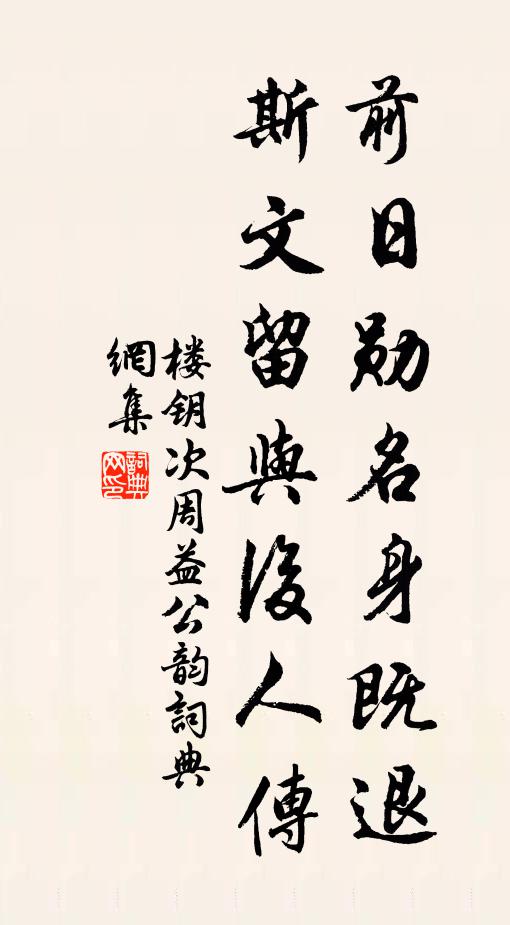 前日勋名身既退
斯文留與後人傳
楼钥次周益公韵詞典
網集
詞典網印